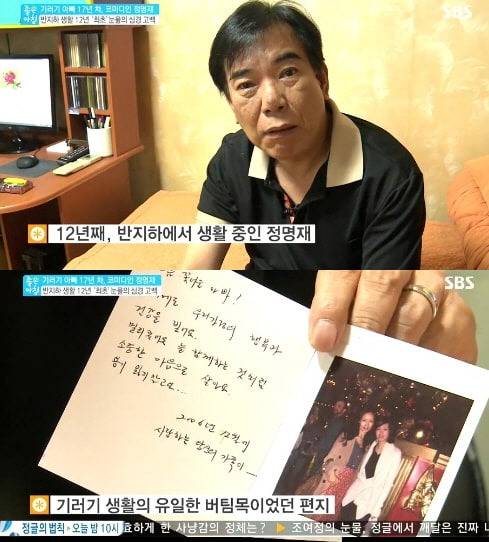 좋은 아침
기러기 아빠 17년 차, 코미디언 정명재
반지하 생활 12년 '최초' 눈물의 심경 고백
SBS
12년째, 반지하에서 생활 중인 정명재
좋은 아침
기러기 아빠 17년 차, 코미디언 정명재
반지하 생활 12년 '최초' 눈물의 심경 고백
SBS
행복과
건강을 빌어요.
늘 함께하는 것처럼
소중한 마음으로 살아요.
용기 잃지
2006년
사랑하는 당신의 가족이
기러기 생활의 유일한 버팀목이었던 편지
정글의 법칙 오늘 밤 10시 효하게 한 사냥감의 정체는? ▶ 조여정의 눈물, 정글에서 깨달은 진짜 나